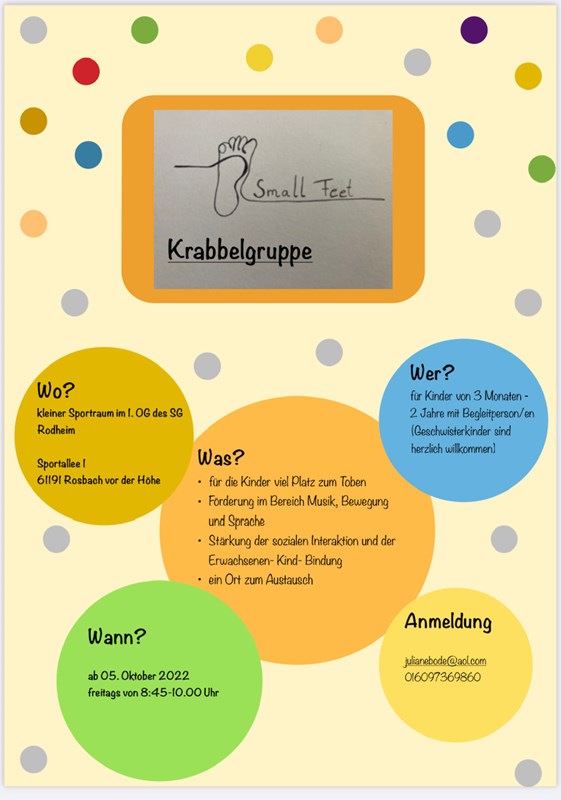 Small Feet
Krabbelgruppe
Wo?
kleiner Sportraum im 1. OG des SG
Rodheim
Sportallee 1
61191 Rosbach vor der Höhe
Wer?
für Kinder von 3 Monaten -
2 Jahre mit Begleitperson/en
(Geschwisterkinder sind
herzlich willkommen)
Was?
• für die Kinder viel Platz zum Toben
• Förderung im Bereich Musik, Bewegung
und Sprache
• Stärkung der sozialen Interaktion und der
Erwachsenen- Kind- Bindung
• ein Ort zum Austausch
Wann?
ab 05. Oktober 2022
freitags von 8:45-10.00 Uhr
Anmeldung
julianebode@aol.com
016097369860